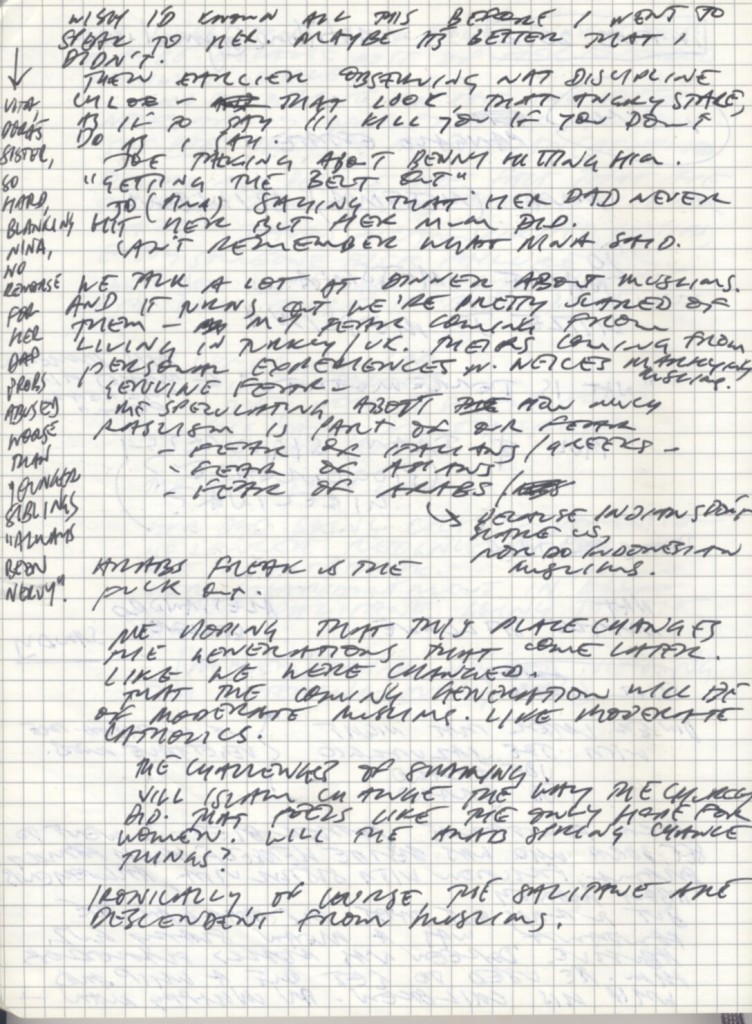 WISH I'D KNOWN ALL THIS BEFORE I WENT TO
SPEAK TO HER. MAYBE ITS BETTER THAT I
DIDN'T.
THEN EARLIER OBSERVING NAT DISCIPLINE
CHLOE - THAT LOOK, THAT ANGRY STARE,
AS IF TO SAY I'LL KILL YOU IF YOU DON'T
DO AS I SAY.
JOE TALKING ABOUT BENNY HITTING HIM.
"GETTING THE BELT OUT"
TO (ANA) SAYING THAT HER DAD NEVER
HIT HER BUT HER MUM DID.
CAN'T REMEMBER WHAT NINA SAID.
VITA,
DORA'S
SISTER,
SO
HARD,
BLANKING
NINA,
NO
REMORSE
FOR
HER
DAD
PROBS
ABUSED
WORSE
THAN
YOUNGER
SIBLINGS
"ALWAYS
BEEN
NERVY".
WE TALK A LOT AT DINNER ABOUT MUSLIMS.
AND IT TURNS OUT WE'RE PRETTY SCARED OF
THEM - MY FEAR COMING FROM
LIVING IN TURKEY/UK. THEIRS COMING FROM
PERSONAL EXPERIENCES W. NEICES MARRYING
MUSLIMS.
GENUINE FEAR.
ME SPECULATING ABOUT HOW MUCH
RACISM IS PART OF OUR FEAR
- FEAR OF ITALIANS/GREEKS -
- FEAR OF ASIANS
- FEAR OF ARABS /
BECAUSE INDIANS DON'T
SCARE US,
NOR DO INDONESIAN
MUSLIMS.
ARABS FREAK US THE
FUCK OUT.
ME HOPING THAT THIS PLACE CHANGES
THE GENERATIONS THAT COME LATER.
LIKE WE WERE CHANGED.
THAT THE COMING GENERATION WILL BE
OF MODERATE MUSLIMS. LIKE MODERATE
CATHOLICS.
THE CHALLENGES OF SHARING
WILL ISLAM CHANGE THE WAY THE CHURCH
DID. THAT FEELS LIKE THE ONLY HOPE FOR
WOMEN. WILL THE ARAB SPRING CHANGE
THINGS?
IRONICALLY OF COURSE THE ARE
DESCENDENT FROM MUSLIMS.